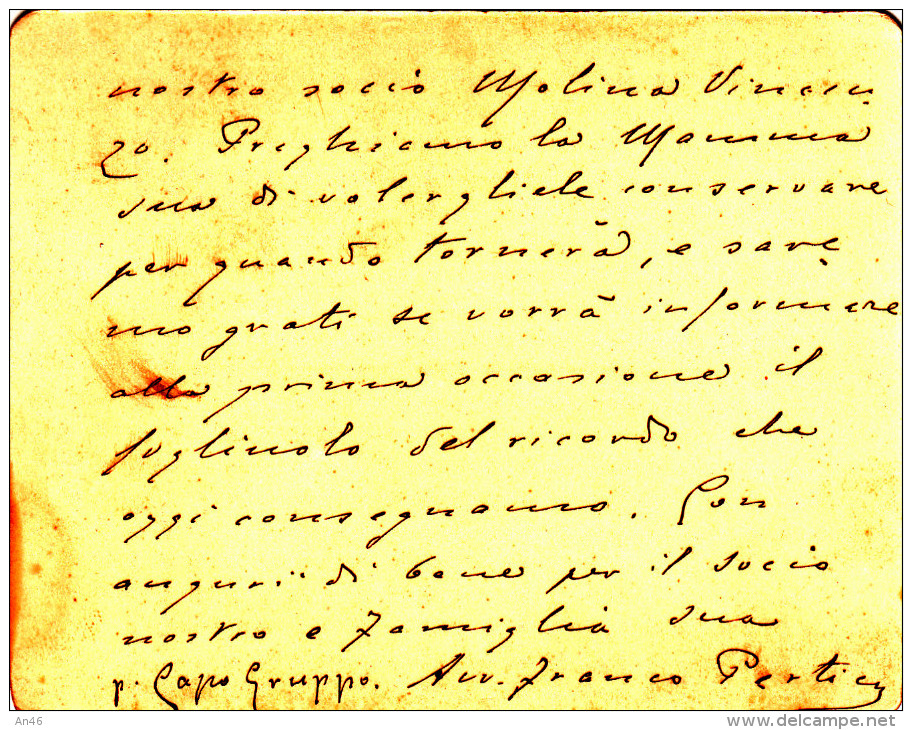 nostro socio Molina Vincen-
zo. Preghiamo la Mamma
sua di volergliele conservare
per quando tornerà, e sare
mo grati se vorrà informare
alla prima occasione il
figliuolo del ricordo che
oggi consegnamo. Con
augurii di bene per il socio
nostro e famiglia sua
p. Capo Gruppo. Avv. Franco
An46
www.delcampe.net